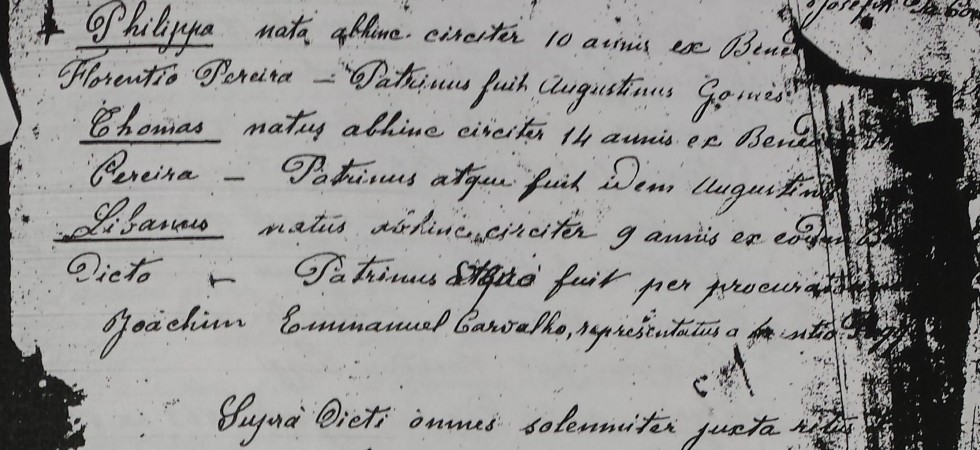 Josepha
Philippa nata abhinc circiter 10 annis ex Bene
Florentio Pereira — Patrinus fuit Augustinus Gomes
Thomas natus abhinc circiter 14 annis ex Bene
Pereira — Patrinus atque fuit idem Augustinus
Libanus natus abhinc circiter 9 annis ex eodem
Dicto — Patrinus atque fuit per procura
Joachim Emmanuel Carvalho, representatus a
Suprà Dicti omnes solemniter juxta ritus